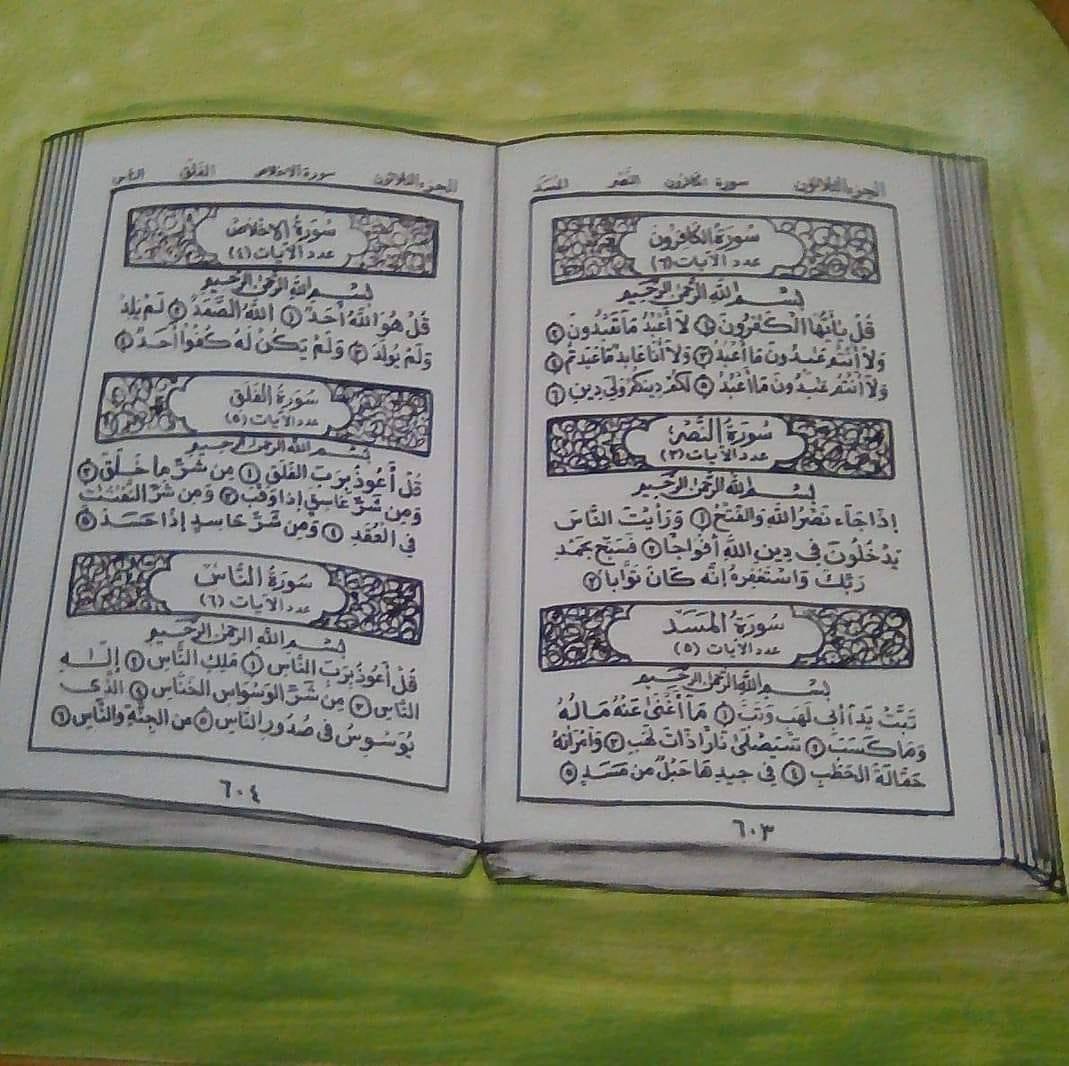 الجزء الثلاثون سورة الكافرون النصر المسد
سورة الكافرون
عدد الآيات (٦)
بسم الله الرحمن الرحيم
قل يأيها الكفرون ١ لا أعبد ما تعبدون ٢
ولا أنتم عبدون ما أعبد ٣ ولا أنا عابد ما عبدتم ٤
ولا أنتم عبدون ما أعبد ٥ لكم دينكم ولي دين ٦
سورة النصر
عدد الآيات (٣)
بسم الله الرحمن الرحيم
إذا جاء نصر الله والفتح ١ ورأيت الناس
يدخلون في دين الله أفواجا ٢ فسبح بحمد
ربك واستغفره إنه كان توابا ٣
سورة المسد
عدد الآيات (٥)
بسم الله الرحمن الرحيم
تبت يدا أبي لهب وتب ١ ما أغنى عنه ماله
وما كسب ٢ سيصلى نارا ذات لهب ٣ وامرأته
حمالة الحطب ٤ في جيدها حبل من مسد ٥
٦٠٣
الجزء الثلاثون سورة الاخلاص الفلق الناس
سورة الإخلاص
عدد الآيات (٤)
بسم الله الرحمن الرحيم
قل هو الله أحد ١ الله الصمد ٢ لم يلد
ولم يولد ٣ ولم يكن له كفوا أحد ٤
سورة الفلق
عدد الآيات (٥)
بسم الله الرحمن الرحيم
قل أعوذ برب الفلق ١ من شر ما خلق ٢
ومن شر غاسق إذا وقب ٣ ومن شر النفثت
في العقد ٤ ومن شر حاسد إذا حسد ٥
سورة الناس
عدد الآيات (٦)
بسم الله الرحمن الرحيم
قل أعوذ برب الناس ١ ملك الناس ٢ إله
الناس ٣ من شر الوسواس الخناس ٤ الذى
يوسوس فى صدور الناس ٥ من الجنة والناس ٦
٦٠٤